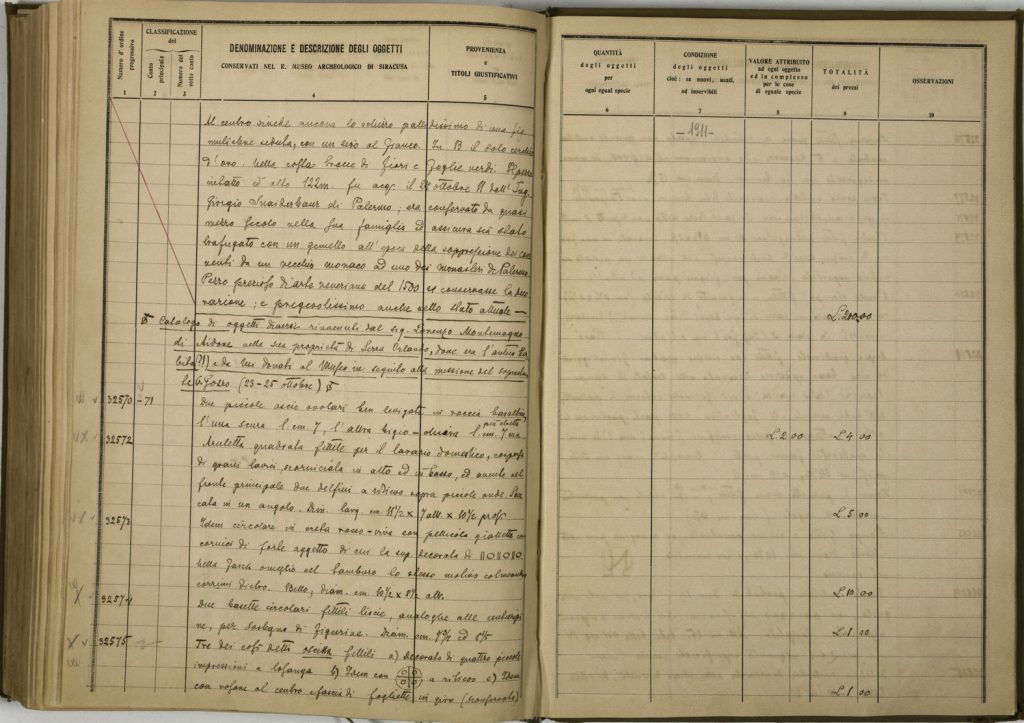 Numero d'ordine progressivo
CLASSIFICAZIONE del
Conto principale
Numero del sotto conto
DENOMINAZIONE E DESCRIZIONE DEGLI OGGETTI
CONSERVATI NEL R. MUSEO ARCHEOLOGICO DI SIRACUSA
PROVENIENZA
e
TITOLI GIUSTIFICATIVI
1 2 3 4 5
Al centro siede ancora lo di una fig.
muliebre seduta, con un al fianco. In B il solo cerchio
d'oro. Nella coffa bracce di fiori e foglie verdi. Il pezzo
intatto è alto 122m. fu acq. il 24 ottobre 11 dall' Ing.
Giorgio di Palermo; era conservato da quasi
mezzo secolo nella sua famiglia ed assicura sia stato
trafugato con un gemello all'epoca della soppressione dei con
venti da un vecchio monaco ad uno dei monasteri di Palermo.
Pezzo prezioso d'arte veneziana del 1500 se conservasse la deco
razione; e pregevolissimo anche nello stato attuale —
Catalogo di oggetti diversi rinvenuti dal sig. Lorenzo Montemagno
di Aidone nella sua proprietà di Serra Orlando, dove era l'antica
(?!) e da lui donati al Museo in seguito alla missione del
le G. Gosso (23-25 ottobre)
32570 - 71 Due piccole ascie ovolari ben levigate in roccia basaltica,
l'una scura l. cm 7, l'altra bigio-olivina più stretta l. cm. 7
32572 Aruletta quadrata fittile per il larario domestico, composta
di grani lavici, scorniciata in alto ed in basso, ed avente nel
fronte principale due delfini a rilievo sopra piccole onde.
cata in un angolo. Dim. larg. cm 18½ x 7 alt. x 10½ prof.
32573 Idem circolare in creta rosso-viva con pellicola gialletta con
cornici di forte aggetto di cui la sup. decorata di
nella fascia nel tamburo lo stesso motivo
dietro. Bello, diam. cm 10½ x 8½ alt.
32574 Due basette circolari fittili liscie, analoghe alle
ne, per sostegno di figurine. Diam. cm. 7½ ed 6½
32575 Tre dei così detti oscilla fittili a) decorato di quattro piccole
impressioni a losanga b) Idem con a rilievo c) Idem
con rosone al centro e fascia di fogliette in giro (conservato)
QUANTITÀ
degli oggetti
per
ogni egual specie
CONDIZIONE
degli oggetti
cioè: se nuovi, usati,
od inservibili
VALORE ATTRIBUITO
ad ogni oggetto
ed in complesso
per le cose
di eguale specie
TOTALITÀ
dei prezzi
OSSERVAZIONI
6 7 8 9 10
-1911-
L. 200,00
L. 2 00 L. 4 00
L. 5 00
L. 10 00
L. 1 00
L. 1 00